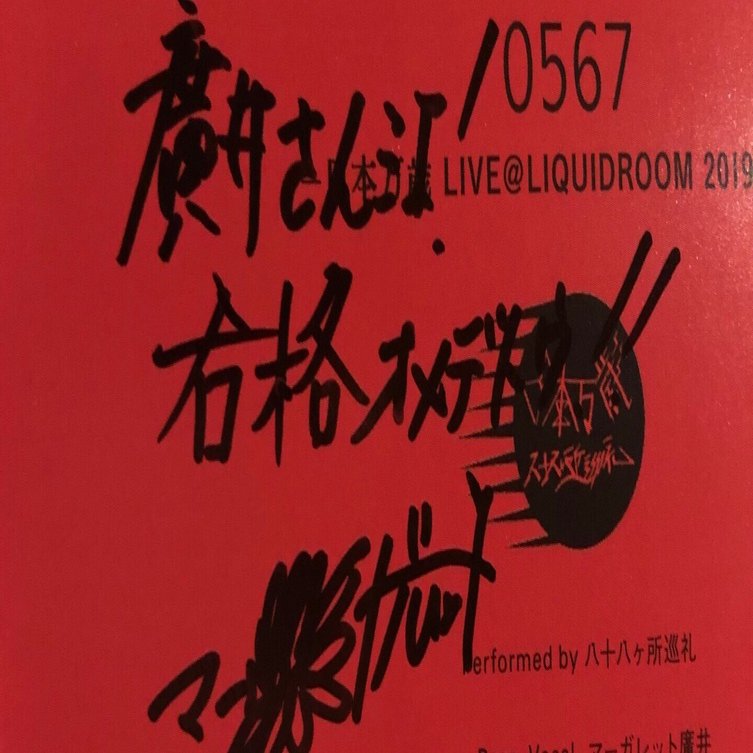 /0567
廣井さん江!
日本万歳 LIVE@LIQUIDROOM 2019
右格オメデトウ!!
日本万歳
八十八ヶ所巡礼
マーガレット
Performed by 八十八ヶ所巡礼
Vocal マーガレット廣井